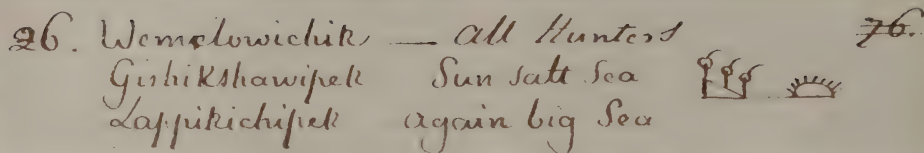 26. Wemelowichik — all Hunters 76.
Gishikshawipek Sun salt Sea
Lappikichipek again big Sea